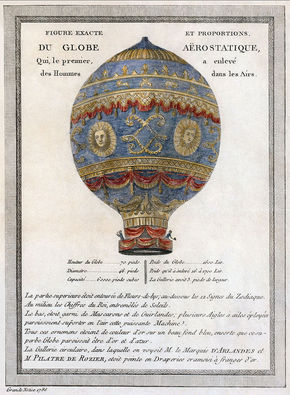 FIGURE EXACTE ET PROPORTIONS,
DU GLOBE AËROSTATIQUE,
Qui, le premier, a enlevé
des Hommes dans les Airs.
Hauteur du Globe 70 pieds
Diametre 46 pieds
Capacité 60000 pieds cubes
Poids du Globe 1600 Liv.
Poids qu'il a enlevé 16 à 1700 Liv.
La Gallerie avoit 3 pieds de largeur.
La partie superieure étoit entourée de Fleurs-de-lys; au-dessous les 12 Signes du Zodiaque.
Au milieu les Chiffres du Roi, entremêlés de Soleils.
Le bas, étoit garni de Mascarons et de Guirlandes; plusieurs Aigles a ailes éployées
paroissoient supporter en l'air cette puissante Machine.
Tous ces ornemens étoient de couleur d'or sur un beau fond bleu, ensorte que ce su-
perbe Globe paroissoit être d'or et d'azur.
La Gallerie circulaire, dans laquelle on voyoit M. le Marquis D'ARLANDES et
M. PILATRE DE ROZIER, etoit peinte en Draperies cramoisi à franges d'or.